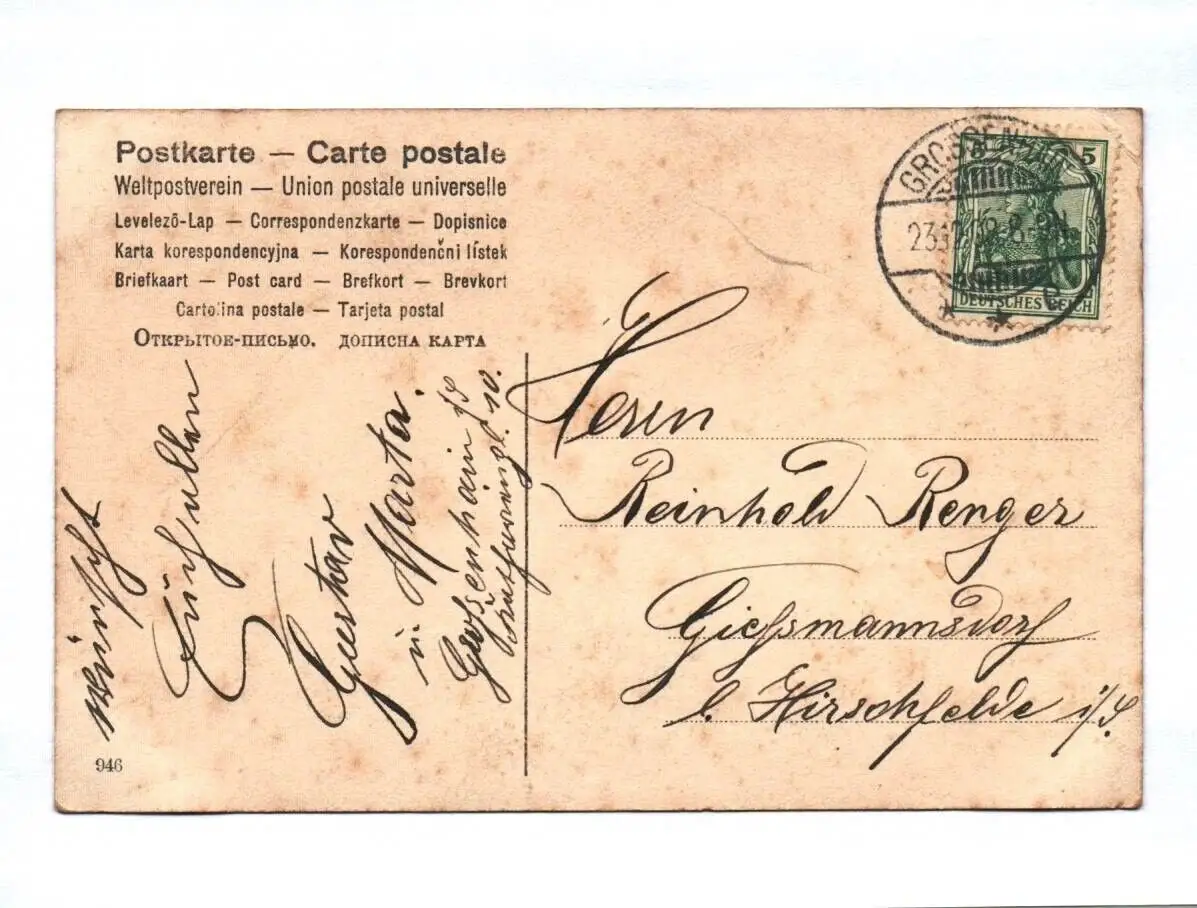 Postkarte — Carte postale
Weltpostverein — Union postale universelle
Levelező-Lap — Correspondenzkarte — Dopisnice
Karta korespondencyjna — Korespondenční lístek
Briefkaart — Post card — Brefkort — Brevkort
Cartolina postale — Tarjeta postal
Открытое-письмо. дописна карта
wünscht
Euch allen
Gustav
u. Marta.
Großenhain i/S
10.
946
5
DEUTSCHES REICH
GROSSENHAIN
Herrn
Reinhold Renger
Gießmannsdorf
b. Hirschfelde i/S.